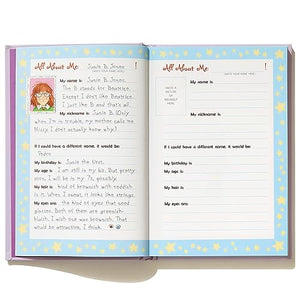 All About Me: Junie B. Jones !
(WRITE YOUR NAME HERE)
My name is: Junie B. Jones.
The B stands for Beatrice.
Except I don't like Beatrice.
I just like B and that's all.
My nickname is: Junie B. (Only
when I'm in trouble, my mother calls me
Missy. I don't actually enjoy that name.)
If I could have a different name, it would be:
My birthday is: June the first.
My age is: I am still in my 6s. But pretty
soon, I will be in my 7s, possibly.
My hair is: kind of brownish with reddish
in it. When I sweat, it is kind of straightish.
My eyes are: the kind of eyes that need
glasses. Both of them are greenish-
bluish. I wish one was brown.
That would be attractive, I think.
All About Me: !
(WRITE YOUR NAME HERE)
My name is:
My nickname is:
If I could have a different name, it would be:
My birthday is:
My age is:
My hair is:
My eyes are: